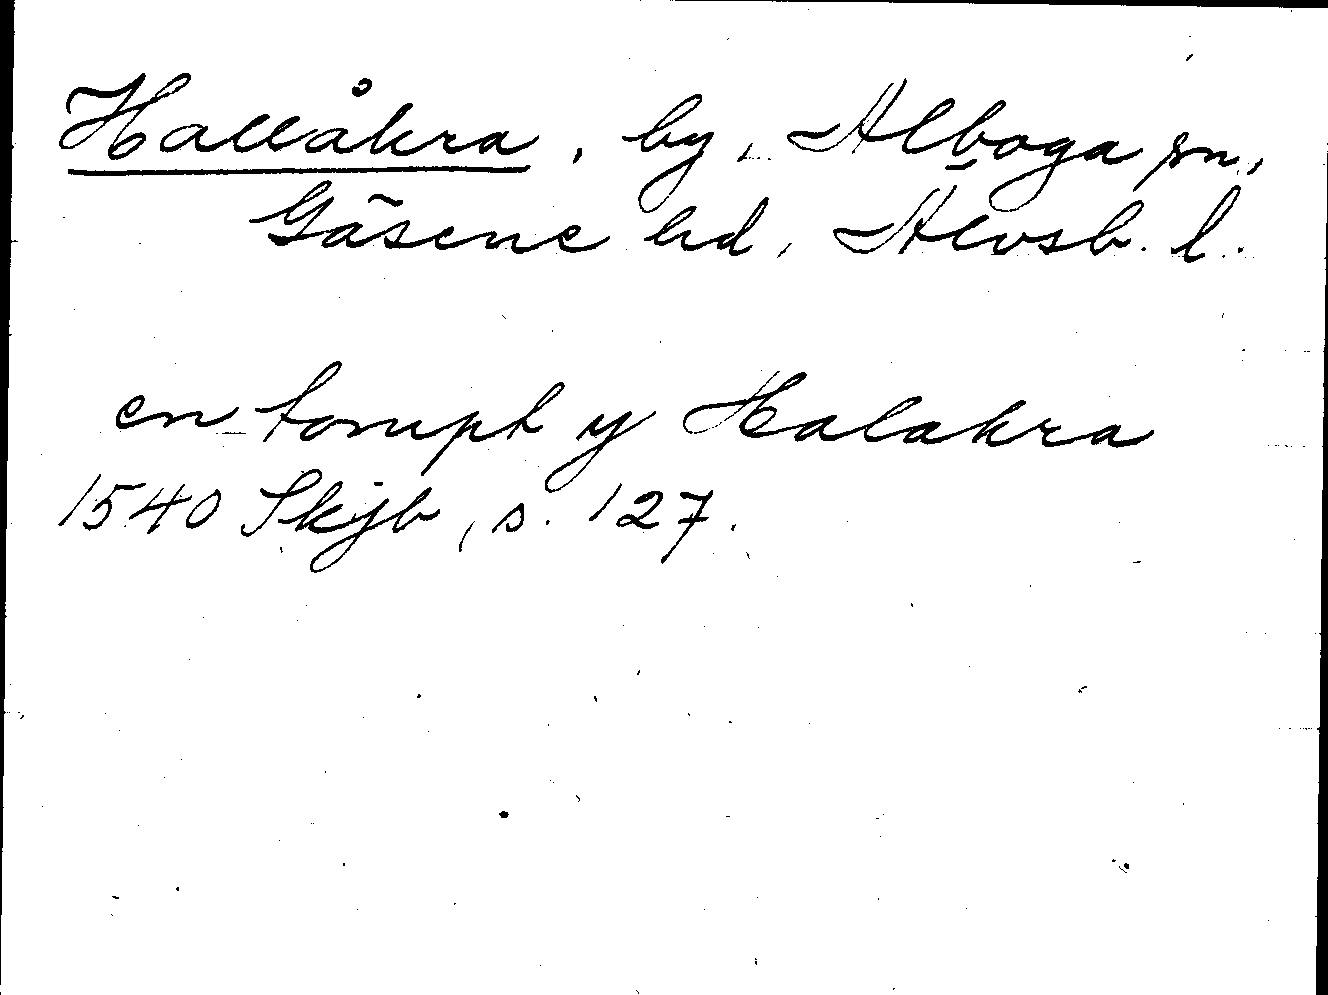 Hallåkra, by, Alboga sn,
Gäsene hd, Älvsb. l.
en tompt y Halakra
1540 Skjb, s. 127.